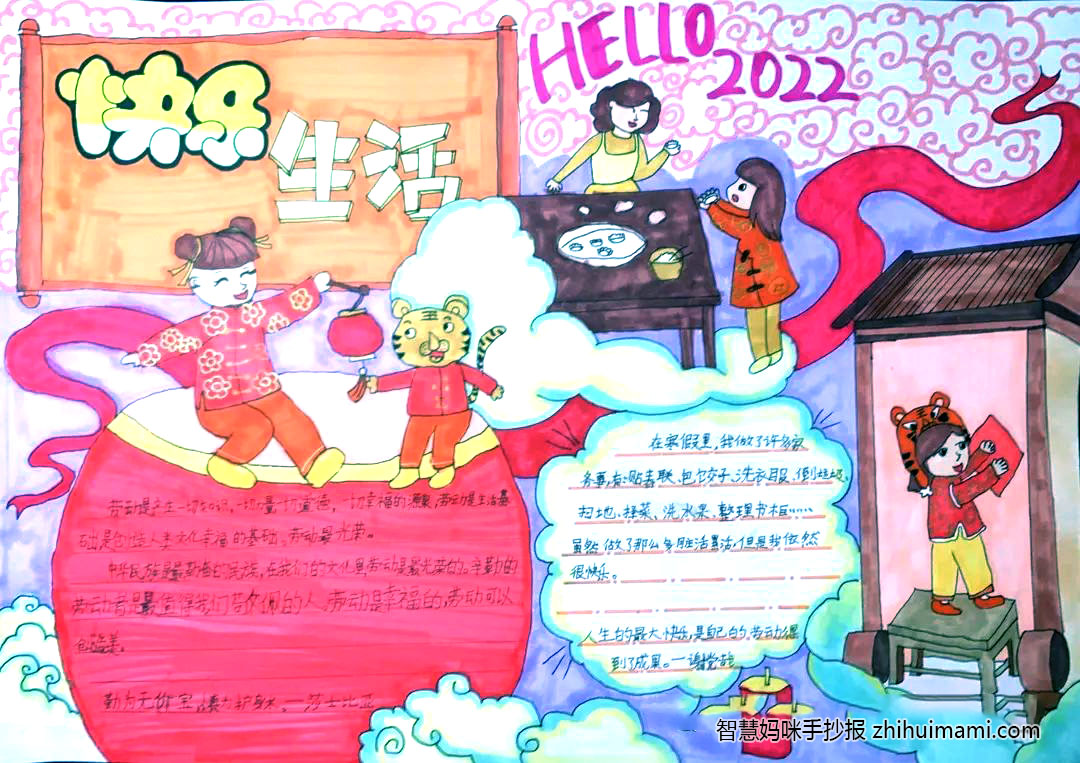 快乐
生活
HELLO
2022
劳动是产生一切知识,一切力量,一切道德,一切幸福的源泉,劳动是生活基
础是创造人类文化幸福的基础。劳动最光荣。
中华民族是最勤劳的民族,在我们的文化里劳动是最光荣的。辛勤的
劳动者是最值得我们尊佩的人,劳动是幸福的,劳动可以
创造美。
勤为无价宝,慎为护身术。一莎士比亚
在寒假里,我做了许多家
务事,有:贴春联、包饺子、洗衣服、倒垃圾、
扫地、择菜、洗水果、整理书柜……
虽然做了那么多脏活累活,但是我依然
很快乐。
人生的最大快乐,是自己的劳动得
到了成果。一谢觉哉
智慧妈咪手抄报 zhihuimami.com